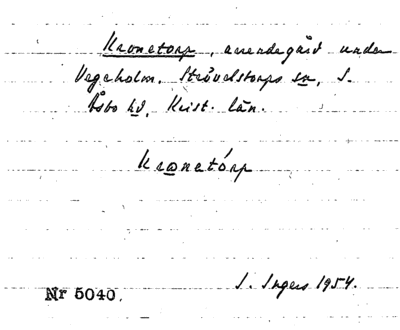 Kronetorp, arrendegård under
Vegeholm. Strövelstorps sn, S.
Åsbo hd, Krist. län.
Kronetórp
I. Ingers 1954.
Nr 5040.